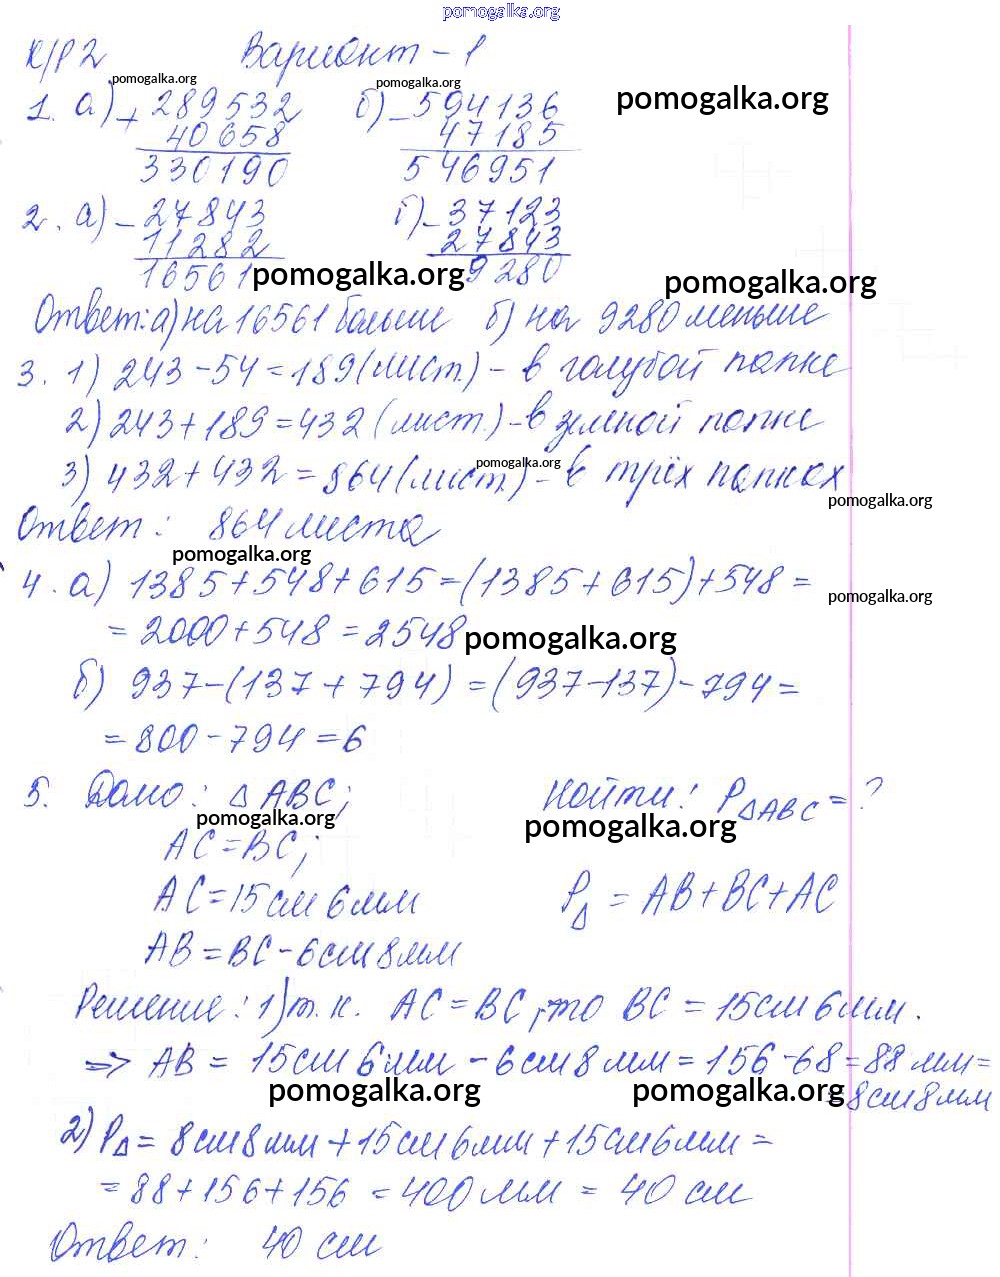 pomogalka.org
К/Р 2 Вариант - 1
pomogalka.org pomogalka.org pomogalka.org
1. а) + 289532 б) - 594136
40658 47185
330190 546951
2. а) - 27843 б) - 37123
11282 27843
16561 9280
pomogalka.org pomogalka.org
Ответ: а) на 16561 больше б) на 9280 меньше
3. 1) 243 - 54 = 189 (лист.) - в голубой папке
2) 243 + 189 = 432 (лист.) - в зеленой папке
3) 432 + 432 = 864 (лист.) - в трёх папках
pomogalka.org pomogalka.org
Ответ: 864 листа
pomogalka.org
4. а) 1385 + 548 + 615 = (1385 + 615) + 548 =
pomogalka.org
= 2000 + 548 = 2548
pomogalka.org
б) 937 - (137 + 794) = (937 - 137) - 794 =
= 800 - 794 = 6
5. Дано: Δ ABC; Найти: P ΔABC = ?
pomogalka.org pomogalka.org
AC = BC;
AC = 15 см 6 мм P Δ = AB + BC + AC
AB = BC - 6 см 8 мм
Решение: 1) т. к. AC = BC, то BC = 15 см 6 мм.
=> AB = 15 см 6 мм - 6 см 8 мм = 156 - 68 = 88 мм =
= 8 см 8 мм
pomogalka.org pomogalka.org
2) P Δ = 8 см 8 мм + 15 см 6 мм + 15 см 6 мм =
= 88 + 156 + 156 = 400 мм = 40 см
Ответ: 40 см